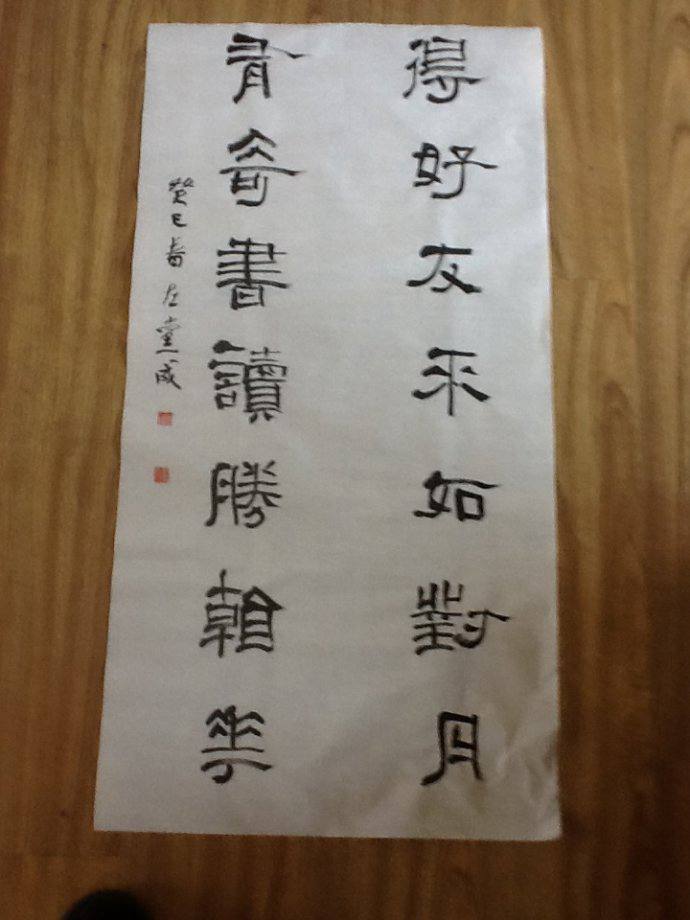 得好友來如對月
有奇書讀勝看花
癸巳春左黨成